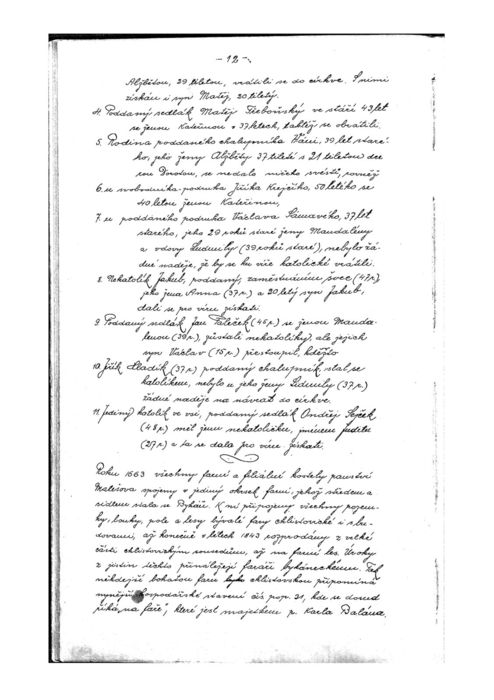 - 12 -
Alžbětou, 29 tiletou, vrátili se do církve. S nimi
získán i syn Matěj, 20 tiletý.
4. Poddaný sedlák Matěj Třeboňský ve stáří 43 let
se ženou Kateřinou v 37 letech, taktéž se obrátili.
5. Rodina poddaného chalupníka Vání, 39 let staré-
ho, jeho ženy Alžběty 37 tileté s 21 tiletou dce-
rou Dorotou, se nedalo ničeho svésti, rovněž
6. u svobodníka-podruha Jiříka Krejčího, 50 letého se
40 letou ženou Kateřinou,
7. u poddaného podruha Václava Šimavého, 37 let
starého, jeho 29 roků staré ženy Mandaliny
a vdovy Ludmily (39 roků staré), nebylo žá-
dné naděje, že by se ku víře katolické vrátili.
8. Nekatolík Jakub, poddaný, zaměstnáním švec (47 r.),
jeho žena Anna (37 r.) a 20 letý syn Jakub,
dali se pro víru získati.
9. Poddaný sedlák Jan Paleček (46 r.) se ženou Manda-
lenou (39 r.), zůstali nekatolíky, ale jejich
syn Václav (15 r.) přestoupil, kdežto
10. Jiřík Sladík (37 r.) poddaný chalupník stal se
katolíkem, nebylo u jeho ženy Lidmily (37 r.)
žádné naděje na návrat do církve.
11. Jediný katolík ve vsi, poddaný sedlák Ondřej Ješek
(48 r.) měl ženu nekatoličku, jménem Juditu
(27 r.) a ta se dala pro víru získati.
Roku 1663 všechny farní a filiální kostely panství
Malešova spojeny v jediný okrsek farní, jehož středem a
sídlem stala se Bykáň. K ní připojeny všechny pozem-
ky, louky, pole a lesy bývalé fary chlístovické i s bu-
dovami, až konečně v letech 1843 rozprodány z velké
části chlístovickým sousedům, až na farní les. Úroky
z jistin těchto přináležejí faráři bykáneckému. Tak
někdejší bohatou faru chlístovskou připomíná
nynější hospodářské stavení čís. pop. 31, kde se dosud
říká „na faře“, které jest majetkem p. Karla Dalána.